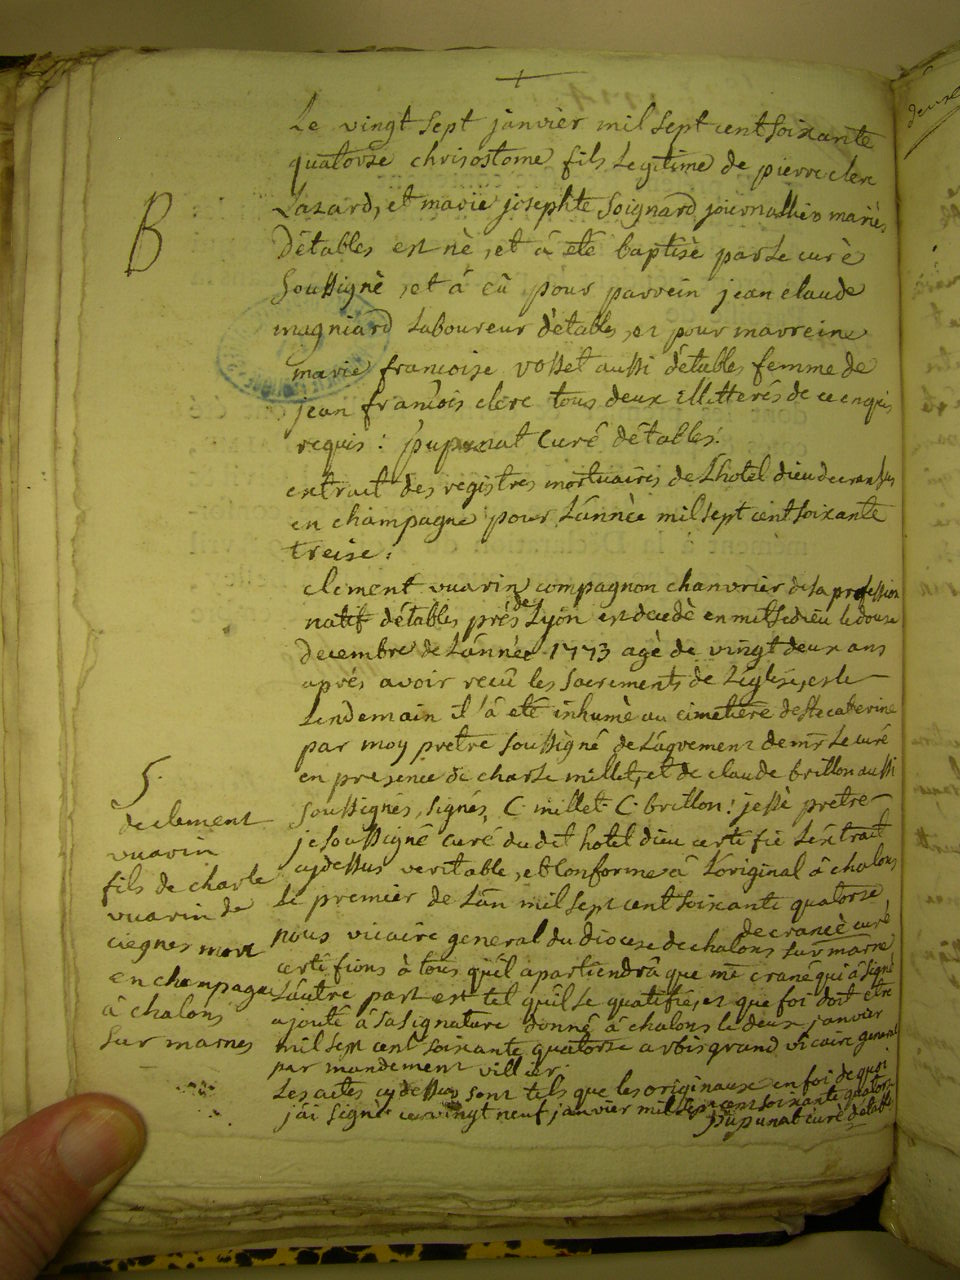 B
Le vingt sept janvier mil sept cent soixante
quatorze chrisostome fils legitime de pierre clerc
Lazard, et marie josephte Soignard journallier mariés
Détables est né, et á eté baptisé par le curé
Soussigné, et á eû pour parrein jean claude
magniard laboureur détables, et pour marreine
marie francoise vosset aussi détables femme de
jean francois clerc tous deux illitterés de ce enquis
requis : pupunat Curé détables.
extrait des registres mortuaires de Lhotel dieu de
en champagne pour Lannée mil sept cent soixante
treise :
clement vuarin compagnon chanvrier de sa profession
natif détables prés de Lyon est decedé en dieu le douse
Decembre de Lannée 1773 agé de vingt deux ans
aprés avoir recû les sacrements de Léglise, et le
Lendemain il á eté inhumé au cimetiére de ste caterine
par moy pretre soussigné de Lagrement de mr le curé
en presence de charle millet, et de claude brillon aussi
soussignés, signés, C. millet C. brillon ! pretre
je soussigné curé dudit hotel dieu certifie Léxtrait
cydessus veritable, et conforme á Loriginal á chalons
le premier de Lan mil sept cent soixante quatorze
de crancé curé
nous vicaire general du diocese de chalons sur marne
certifions á tous quîl apartiendrá que mr crané qui á signé
Láutre part est tel quîl se qualifie, et que foi doit etre
ajouté á sa signature donné á chalons le deux janvier
mil sept cent soixante quatorse grand vicaire general
par mandement villier.
Les actes cy dessus sont tels que les originaux en foi de quoi
jái signé ce vingt neuf janvier mil sept cent soixante quatorse
pupunat curé détables
S.
de clement
vuarin
fils de charle
vuarin de
ciegnes mort
en champagne
á chalons
sur marnes